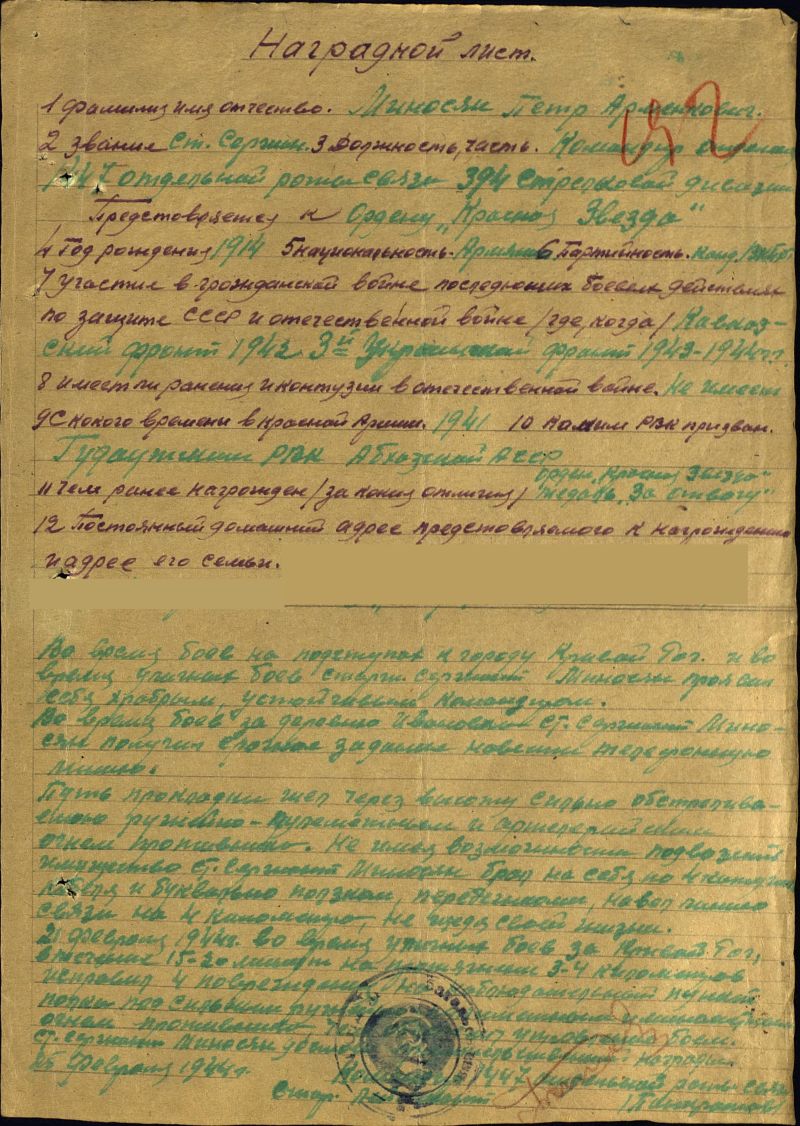 Наградной лист.
1 фамилия имя отчество. Миносян Петр
2 звание Ст. Сержан. 3 Должность, часть. Командир
1447 отдельной роты связи 394 Стрелковой дивизии
Представляется к Ордену „Красная Звезда"
4 Год рождения 1914 5 Национальность. Армянин 6 Партийность. канд.
7 участие в гражданской войне последующих боевых действиях
по защите СССР и отечественной войне /где, когда/ Кавказ-
ский фронт 1942 3й Украинский фронт 1943-1944г.г.
8 имеет ли ранения и контузии в отечественной войне. не имеет
9 С какого времени в красной Армии. 1941 10 Каким РВК призван.
Гудаутским РВК Абхазской АССР
орден „Красная Звезда"
11 чем ранее награжден /за какия отличия/ медаль „За отвагу"
12 Постоянный домашний адрес представляемого к награждению
и адрес его семьи.
Во время боев на подступах к городу Кривой Рог. и во
время уличных боев старш. сержант Миносян проявил
себя храбрым, устойчивым командиром.
Во время боев за деревню Ст. Сержант Мино-
сян получил срочное задание навести телефонную
линию.
Путь прокладки шел через высоту сильно обстрелива-
емою ружейно-пулеметным и артилерийским
огнем противника. Не имея возможности подвозить
имущество ст. сержант Миносян брал на себя по 4 катушки
кабеля и буквально ползком, перебежками, навел линию
связи на 4 километра, не щадя своей жизни.
21 февраля 1944г. во время уличных боев за Кривой Рог,
в течение 15-20 минут на протяжении 3-4 километров
исправил 4 повреждения наблюдательный пункт
полка под сильным и минометным
огнем противника управления боем.
ст. сержант Миносян награды.
25 Февраля 1944г. 1447 отдельной роты связи
Стар.